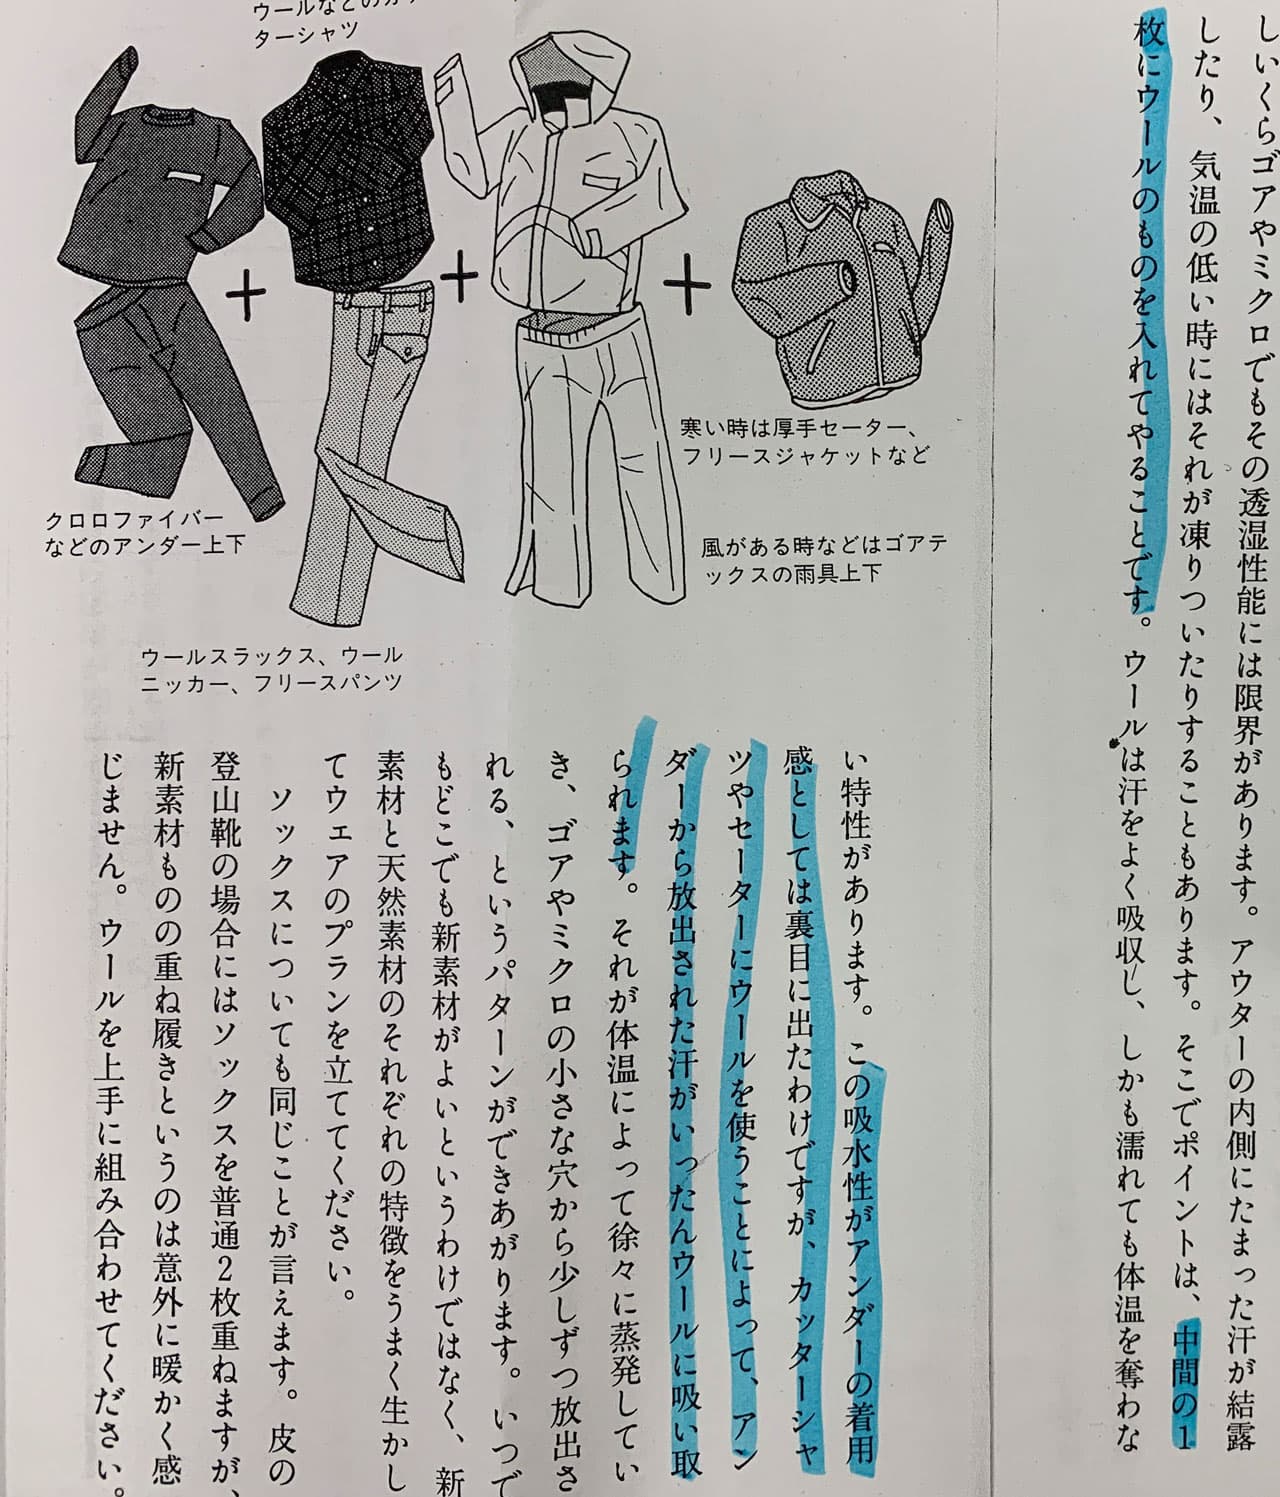 しいくらゴアやミクロでもその透湿性能には限界があります。アウターの内側にたまった汗が結露
したり、気温の低い時にはそれが凍りついたりすることもあります。そこでポイントは、中間の1
枚にウールのものを入れてやることです。ウールは汗をよく吸収し、しかも濡れても体温を奪わな
ウールなどのカッ
ターシャツ
寒い時は厚手セーター、
フリースジャケットなど
クロロファイバー
などのアンダー上下
風がある時などはゴアテ
ックスの雨具上下
ウールスラックス、ウール
ニッカー、フリースパンツ
い特性があります。この吸水性がアンダーの着用
感としては裏目に出たわけですが、カッターシャ
ツやセーターにウールを使うことによって、アン
ダーから放出された汗がいったんウールに吸い取
られます。それが体温によって徐々に蒸発してい
き、ゴアやミクロの小さな穴から少しずつ放出さ
れる、というパターンができあがります。いつで
もどこでも新素材がよいというわけではなく、新
素材と天然素材のそれぞれの特徴をうまく生かし
てウェアのプランを立ててください。
ソックスについても同じことが言えます。皮の
登山靴の場合にはソックスを普通2枚重ねますが、
新素材ものの重ね履きというのは意外に暖かく感
じません。ウールを上手に組み合わせてください。